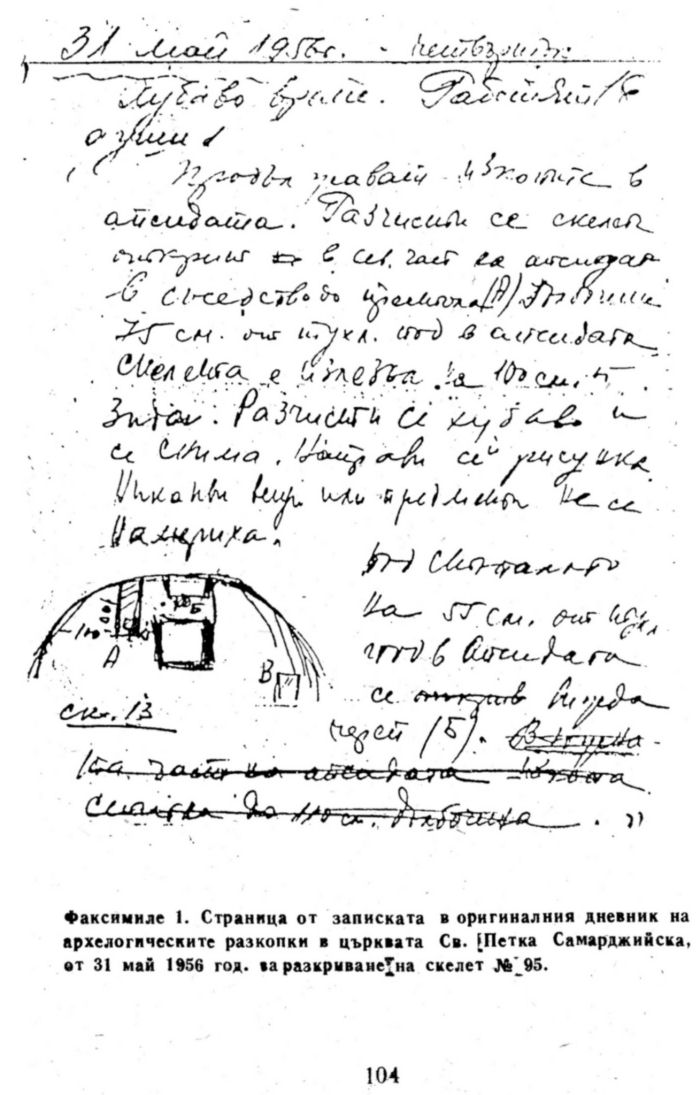 31 май 1956г. - четвъртък
Хубаво време. Работят 16
души
Продължават изкопите в
апсидата. Разчисти се скелет
открит в сев. част на апсидата
в съседство до престола (А) Дълбочина
75 см. от тухл. под в апсидата.
Скелета е
зида. Разчисти се хубаво и
се снима. Направи се рисунка.
Никакви вещи или предмети не се
намериха.
Под
на 55 см. от тухл.
под в апсидата
се открив
череп (Б).
част на апсидата
до 110 см. дълбочина. "
А
Б
В
100
ск. 13
Факсимиле 1. Страница от записката в оригиналния дневник на
архелогическите разкопки в църквата Св. Петка Самарджийска,
от 31 май 1956 год. за разкриване на скелет № 95.
104